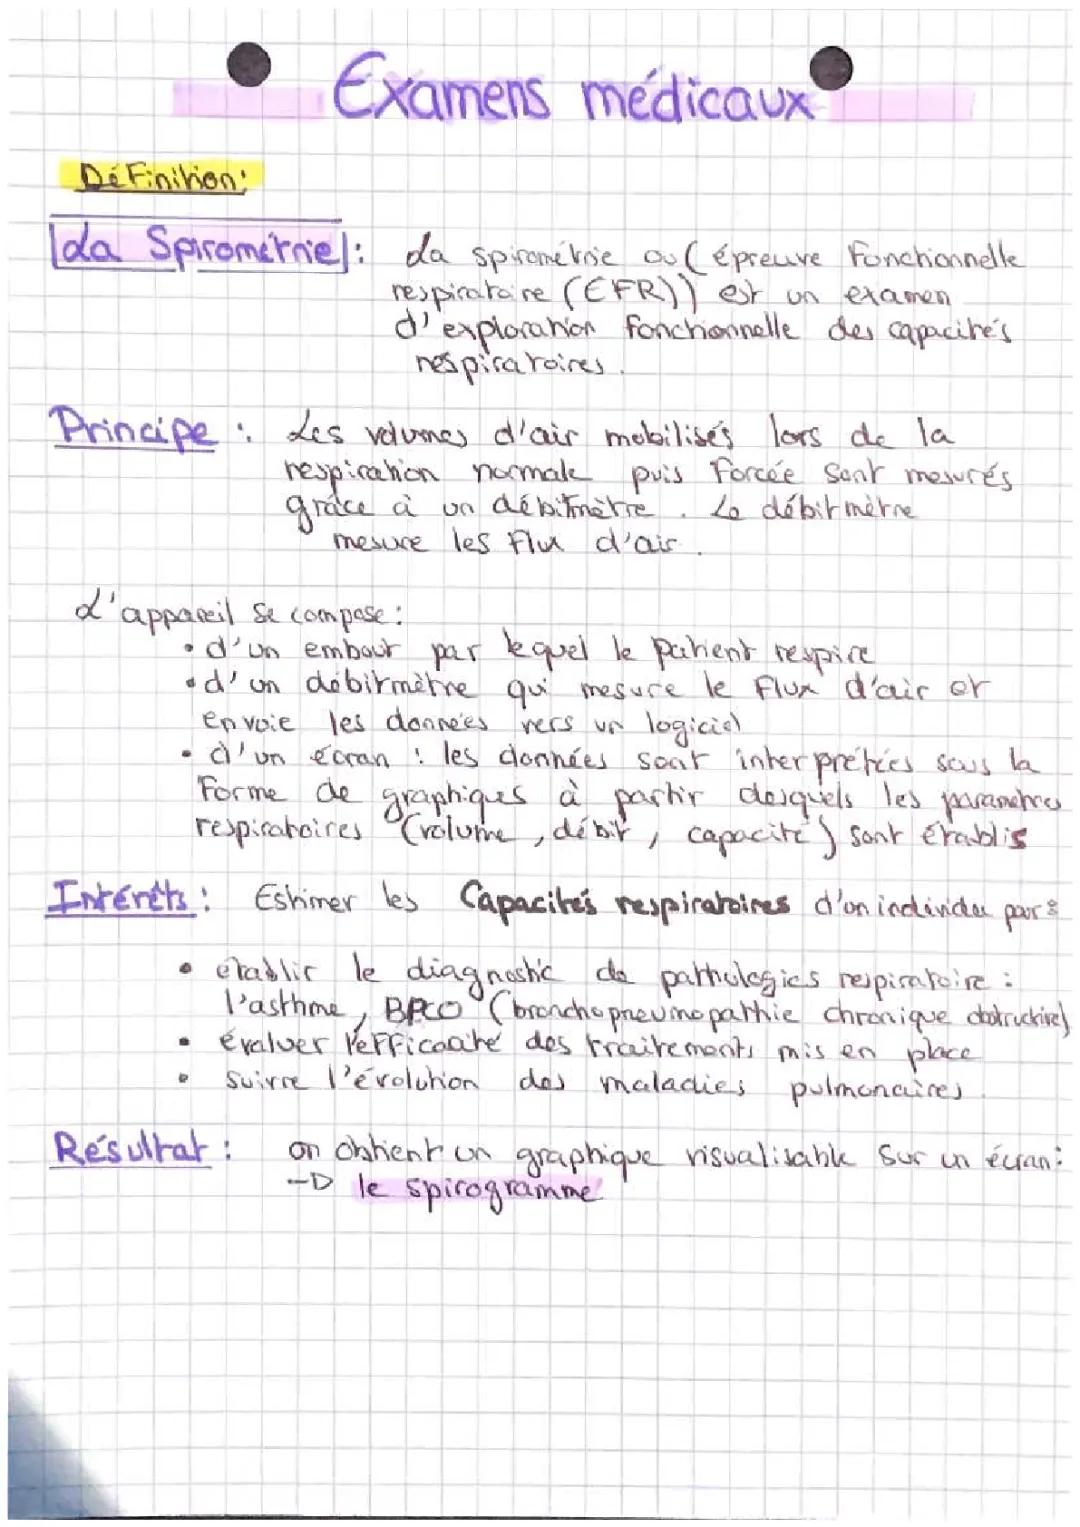 Examens médicaux
Définition:
La Spirométrie : La spirométrie ou (épreuve Fonctionnelle
respiratoire (EFR)) est un examen
d'exploration fonctionnelle des capacités
respiratoires.
Principe : Les volumes d'air mobilisés lors de la
respiration normale puis Forcée sont mesurés
grâce à un débitmètre. Le débitmètre
mesure les Flux d'air.
L'appareil se compose :
• d'un embout par lequel le patient respire
• d'un débitmètre qui mesure le Flux d'air et
envoie les données vers un logiciel
• d'un écran : les données sont interprétées sous la
Forme de graphiques à partir desquels les paramètres
respiratoires (volume, débit, capacité) sont établis
Intérêts : Estimer les Capacités respiratoires d'un individu par :
• établir le diagnostic de pathologies respiratoire :
l'asthme, BPCO (bronchopneumopathie chronique obstructive)
• évaluer l'efficacité des traitements mis en place
• suivre l'évolution des maladies pulmonaires.
Résultat : on obtient un graphique visualisable sur un écran :
→ le spirogramme